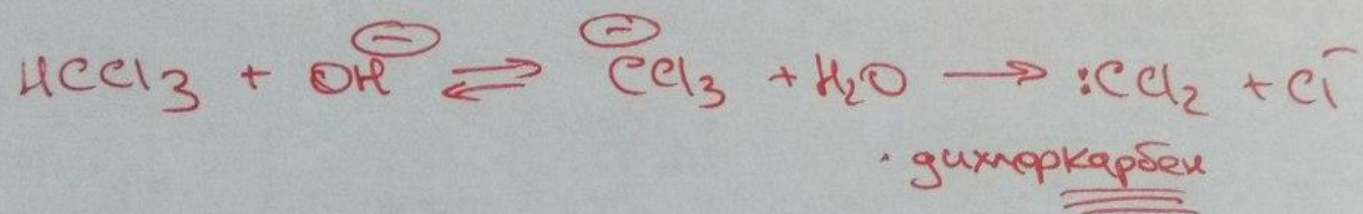 HCCl₃ + OH⁻ ⇌ ⁻CCl₃ + H₂O → :CCl₂ + Cl⁻
· дихлоркарбен